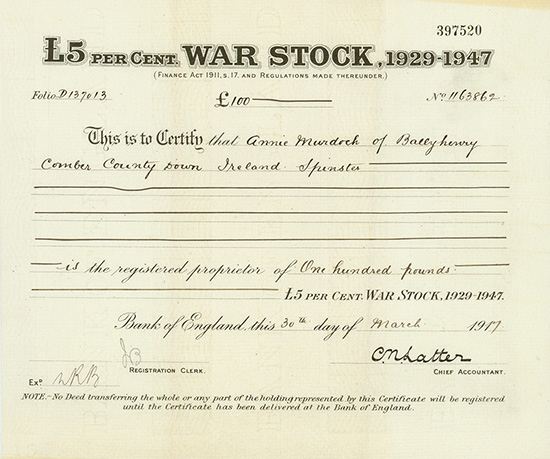 397520
£5 PER CENT. WAR STOCK, 1929-1947
(FINANCE ACT 1911, S. 17. AND REGULATIONS MADE THEREUNDER.)
Folio D137013 £100 No. 1163862
This is to Certify that Annie Murdock of Ballyhenry
Comber County Down Ireland Spinster
is the registered proprietor of One hundred pounds
£5 PER CENT. WAR STOCK, 1929-1947.
Bank of England, this 30th day of March 1917
C.N. Latter
REGISTRATION CLERK. CHIEF ACCOUNTANT.
Exd.
NOTE.-No Deed transferring the whole or any part of the holding represented by this Certificate will be registered
until the Certificate has been delivered at the Bank of England.